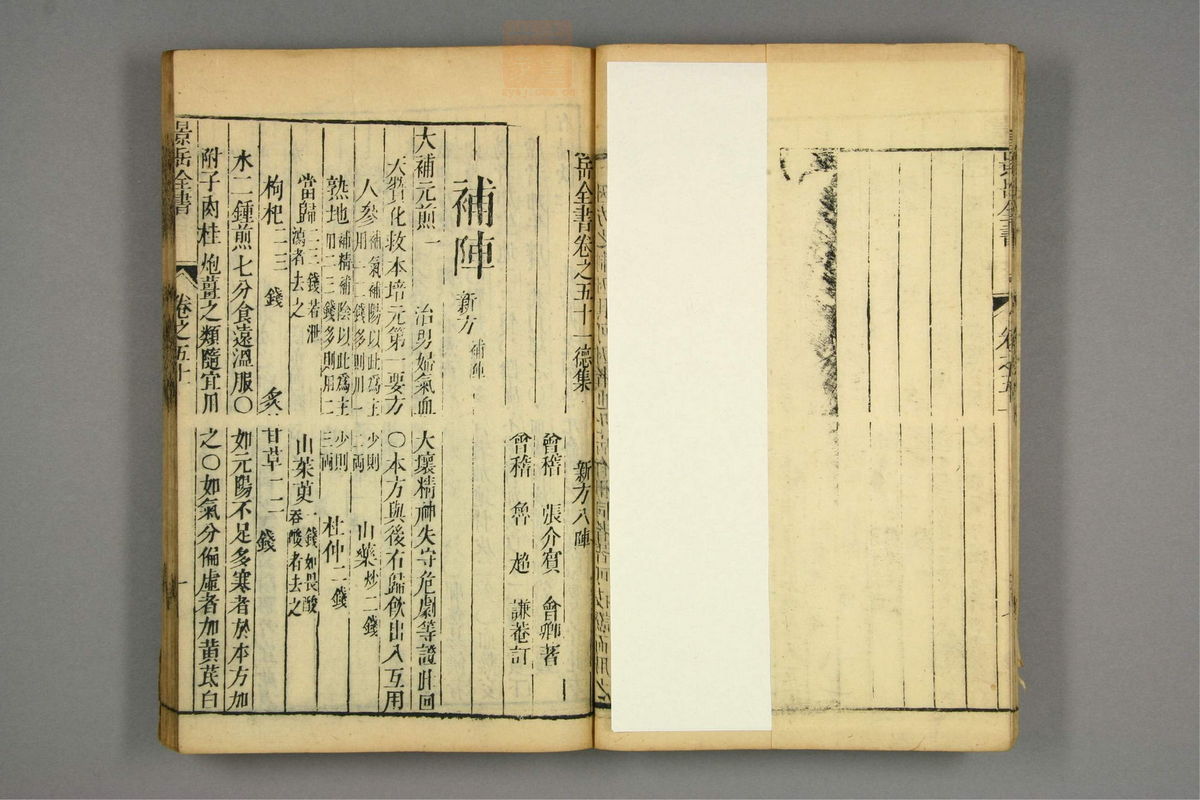 岳全書卷之五十一德集　新方八陣
會稽　張介賓　會卿著
會稽　魯　超　謙菴訂
補陣　新方補陣
大補元煎一　治男婦氣血大壞精神失守危劇等證此回
天贊化救本培元第一要方○本方與後右歸飲出入互用
人參補氣補陽以此爲主少則用一二錢多則用一二兩　山藥炒二錢
熟地補精補陰以此爲主少則用二三錢多則用二三兩　杜仲二錢
當歸二三錢若泄瀉者去之　山茱萸一錢如畏酸吞酸者去之
枸杞二三錢　炙甘草一二錢
水二鍾煎七分食遠溫服○如元陽不足多寒者於本方加
附子肉桂炮薑之類隨宜用之○如氣分偏虛者加黃芪白
景岳全書　卷之五十　一